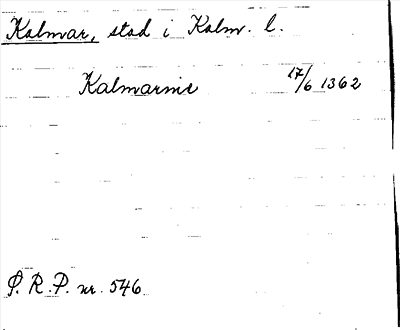 Kalmar, stad i Kalm. l.
Kalmarnis 17/6 1362
S. R. P. nr. 546